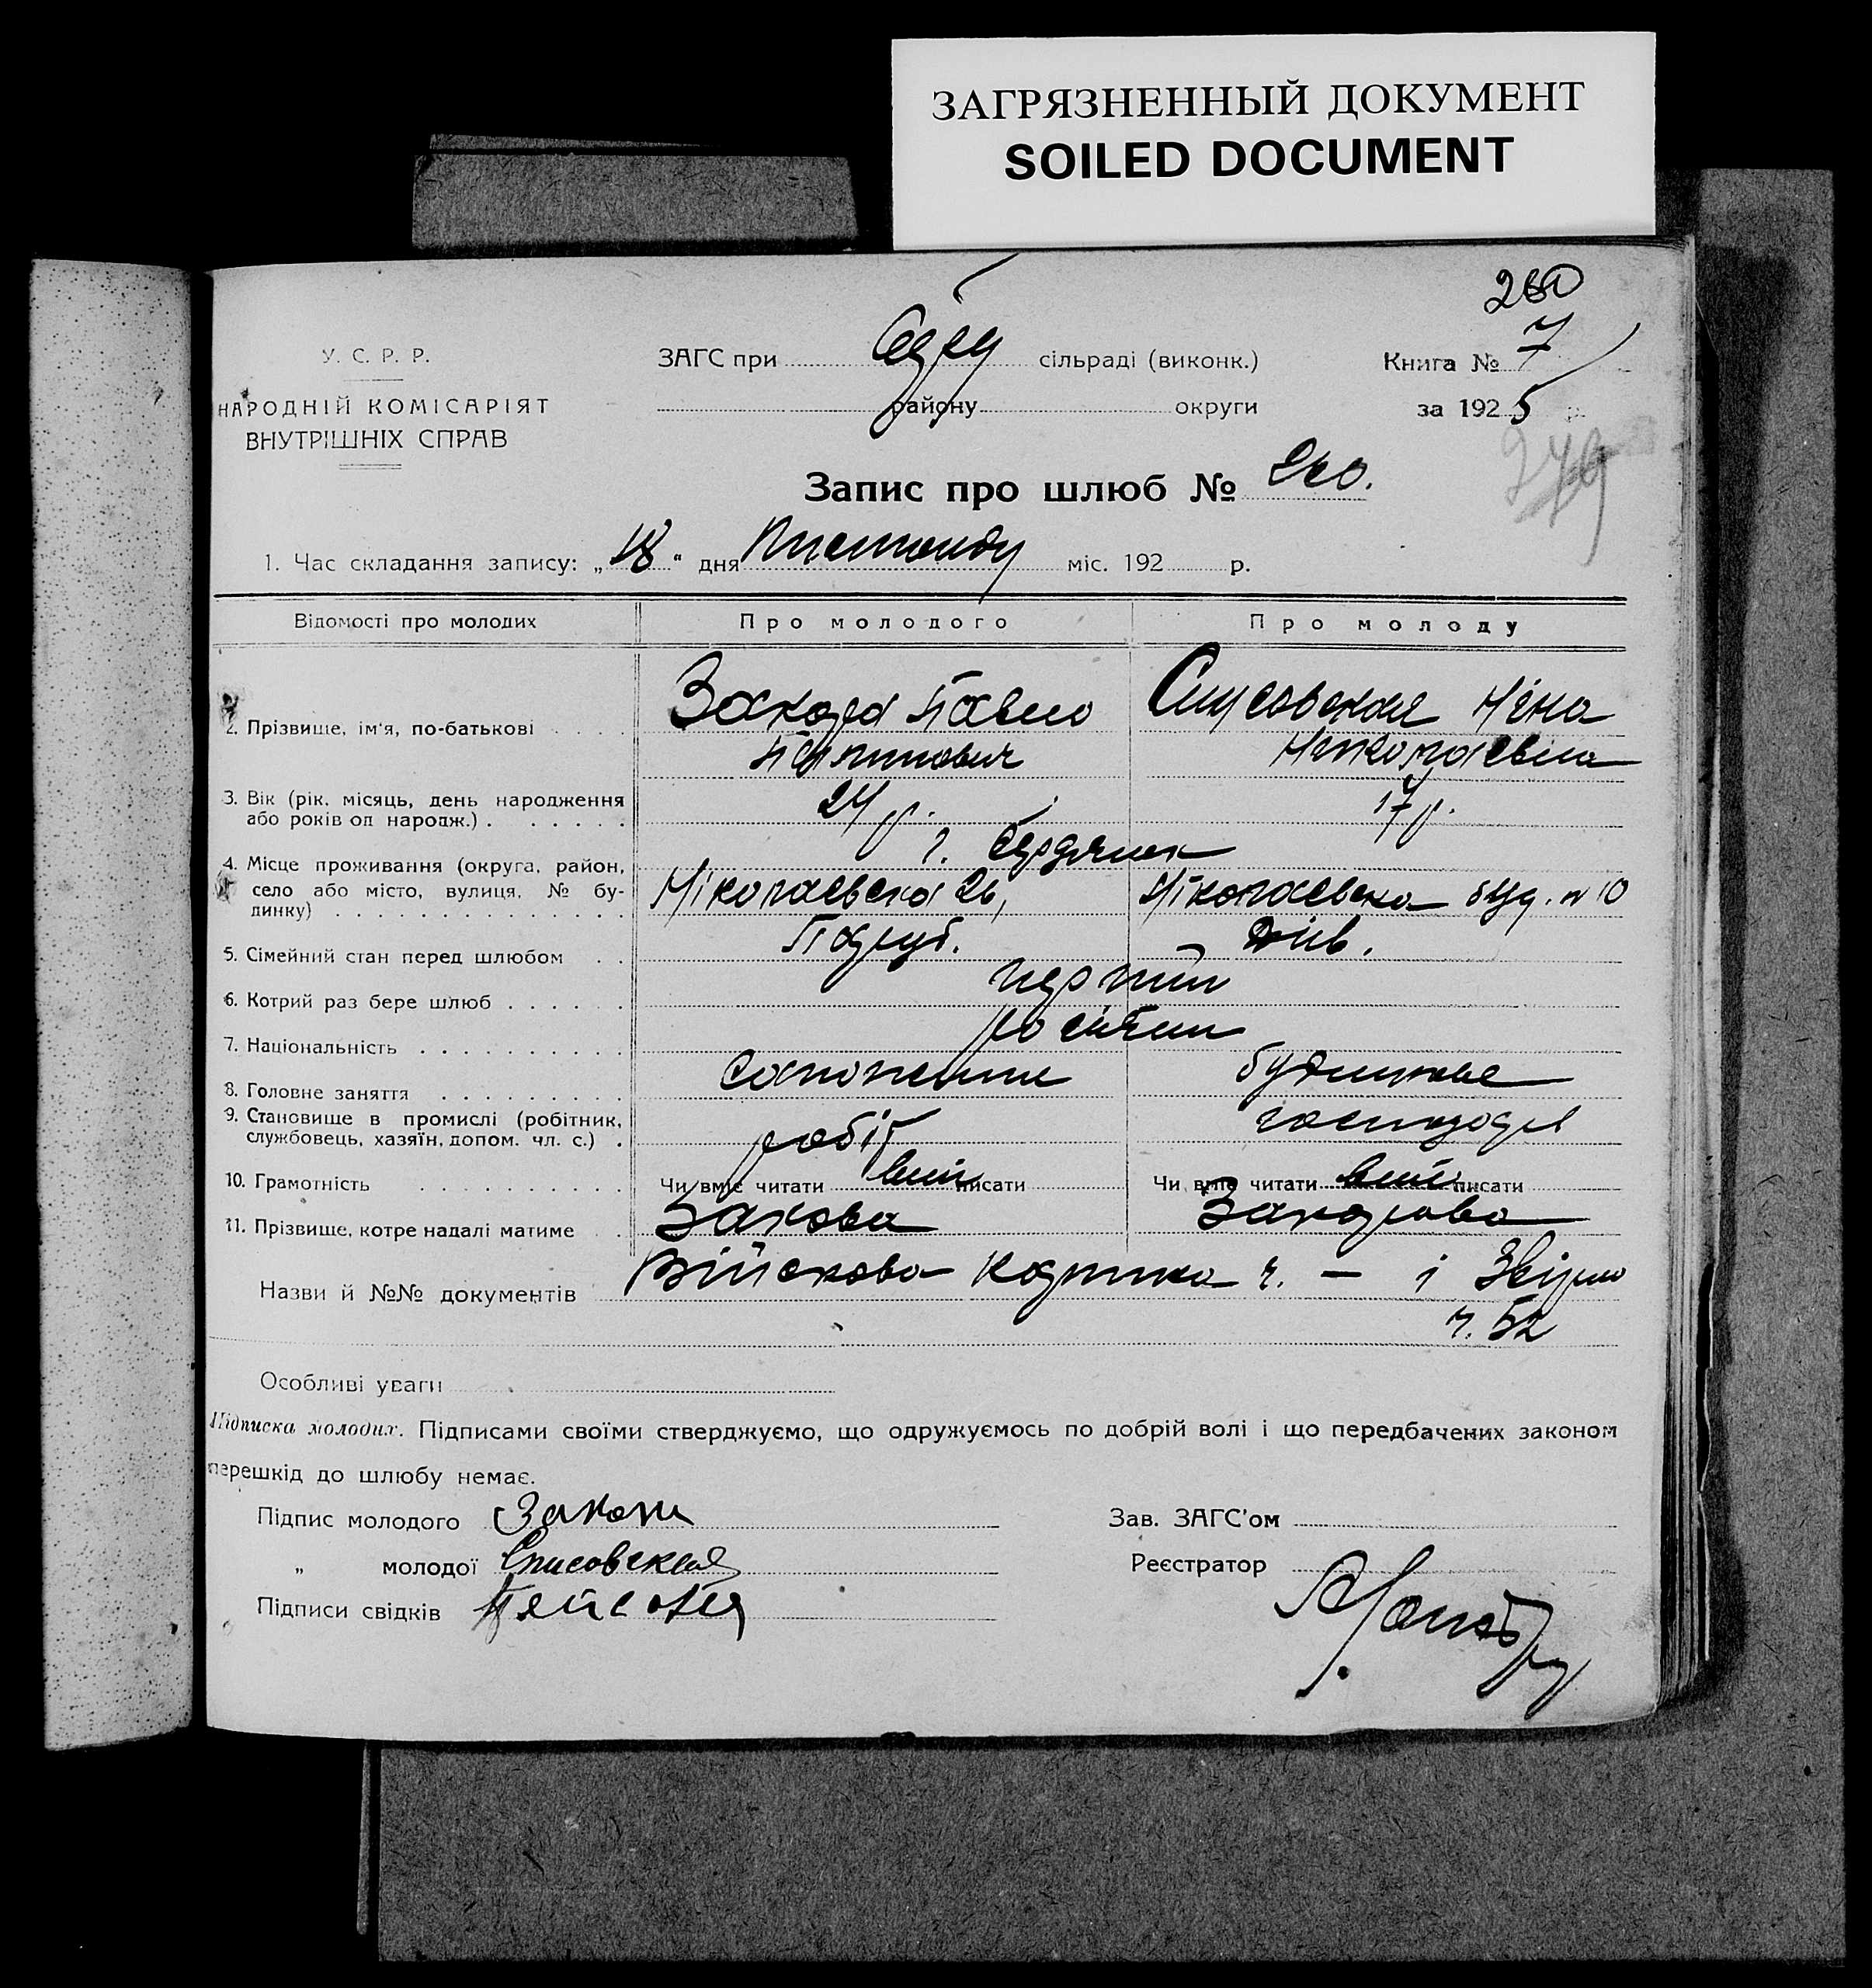 ЗАГРЯЗНЕННЫЙ ДОКУМЕНТ
SOILED DOCUMENT
260
У. С. Р. Р.
НАРОДНІЙ КОМІСАРІЯТ
ВНУТРІШНІХ СПРАВ
ЗАГС при сільраді (виконк.)
району округи
Книга № 7
за 1925 р.
Запис про шлюб № 260.
1. Час складання запису: „18“ дня Листопаду міс. 192 р.
Відомості про молодих Про молодого Про молоду
2. Прізвище, ім'я, по-батькові Павло Ніна
Николаевна
3. Вік (рік, місяць, день народження
або років од народж.) 24 р. 17 р.
г. Бердянск
4. Місце проживання (округа, район,
село або місто, вулиця, № будинку) Ніколаевска 26, Ніколаевска буд. № 10
5. Сімейний стан перед шлюбом Паруб. Дів.
6. Котрий раз бере шлюб перший
7. Національність
8. Головне заняття будинкове
9. Становище в промислі (робітник,
службовець, хазяїн, допом. чл. с.) робіт господар
10. Грамотність Чи вміє читати вміє писати Чи вміє читати вміє писати
11. Прізвище, котре надалі матиме
Назви й №№ документів Військова картка ч. — і
ч. 52
Особливі уваги
Підписка молодих. Підписами своїми стверджуємо, що одружуємось по добрій волі і що передбачених законом
перешкід до шлюбу немає.
Підпис молодого
„ молодої
Підписи свідків
Зав. ЗАГС'ом
Реєстратор